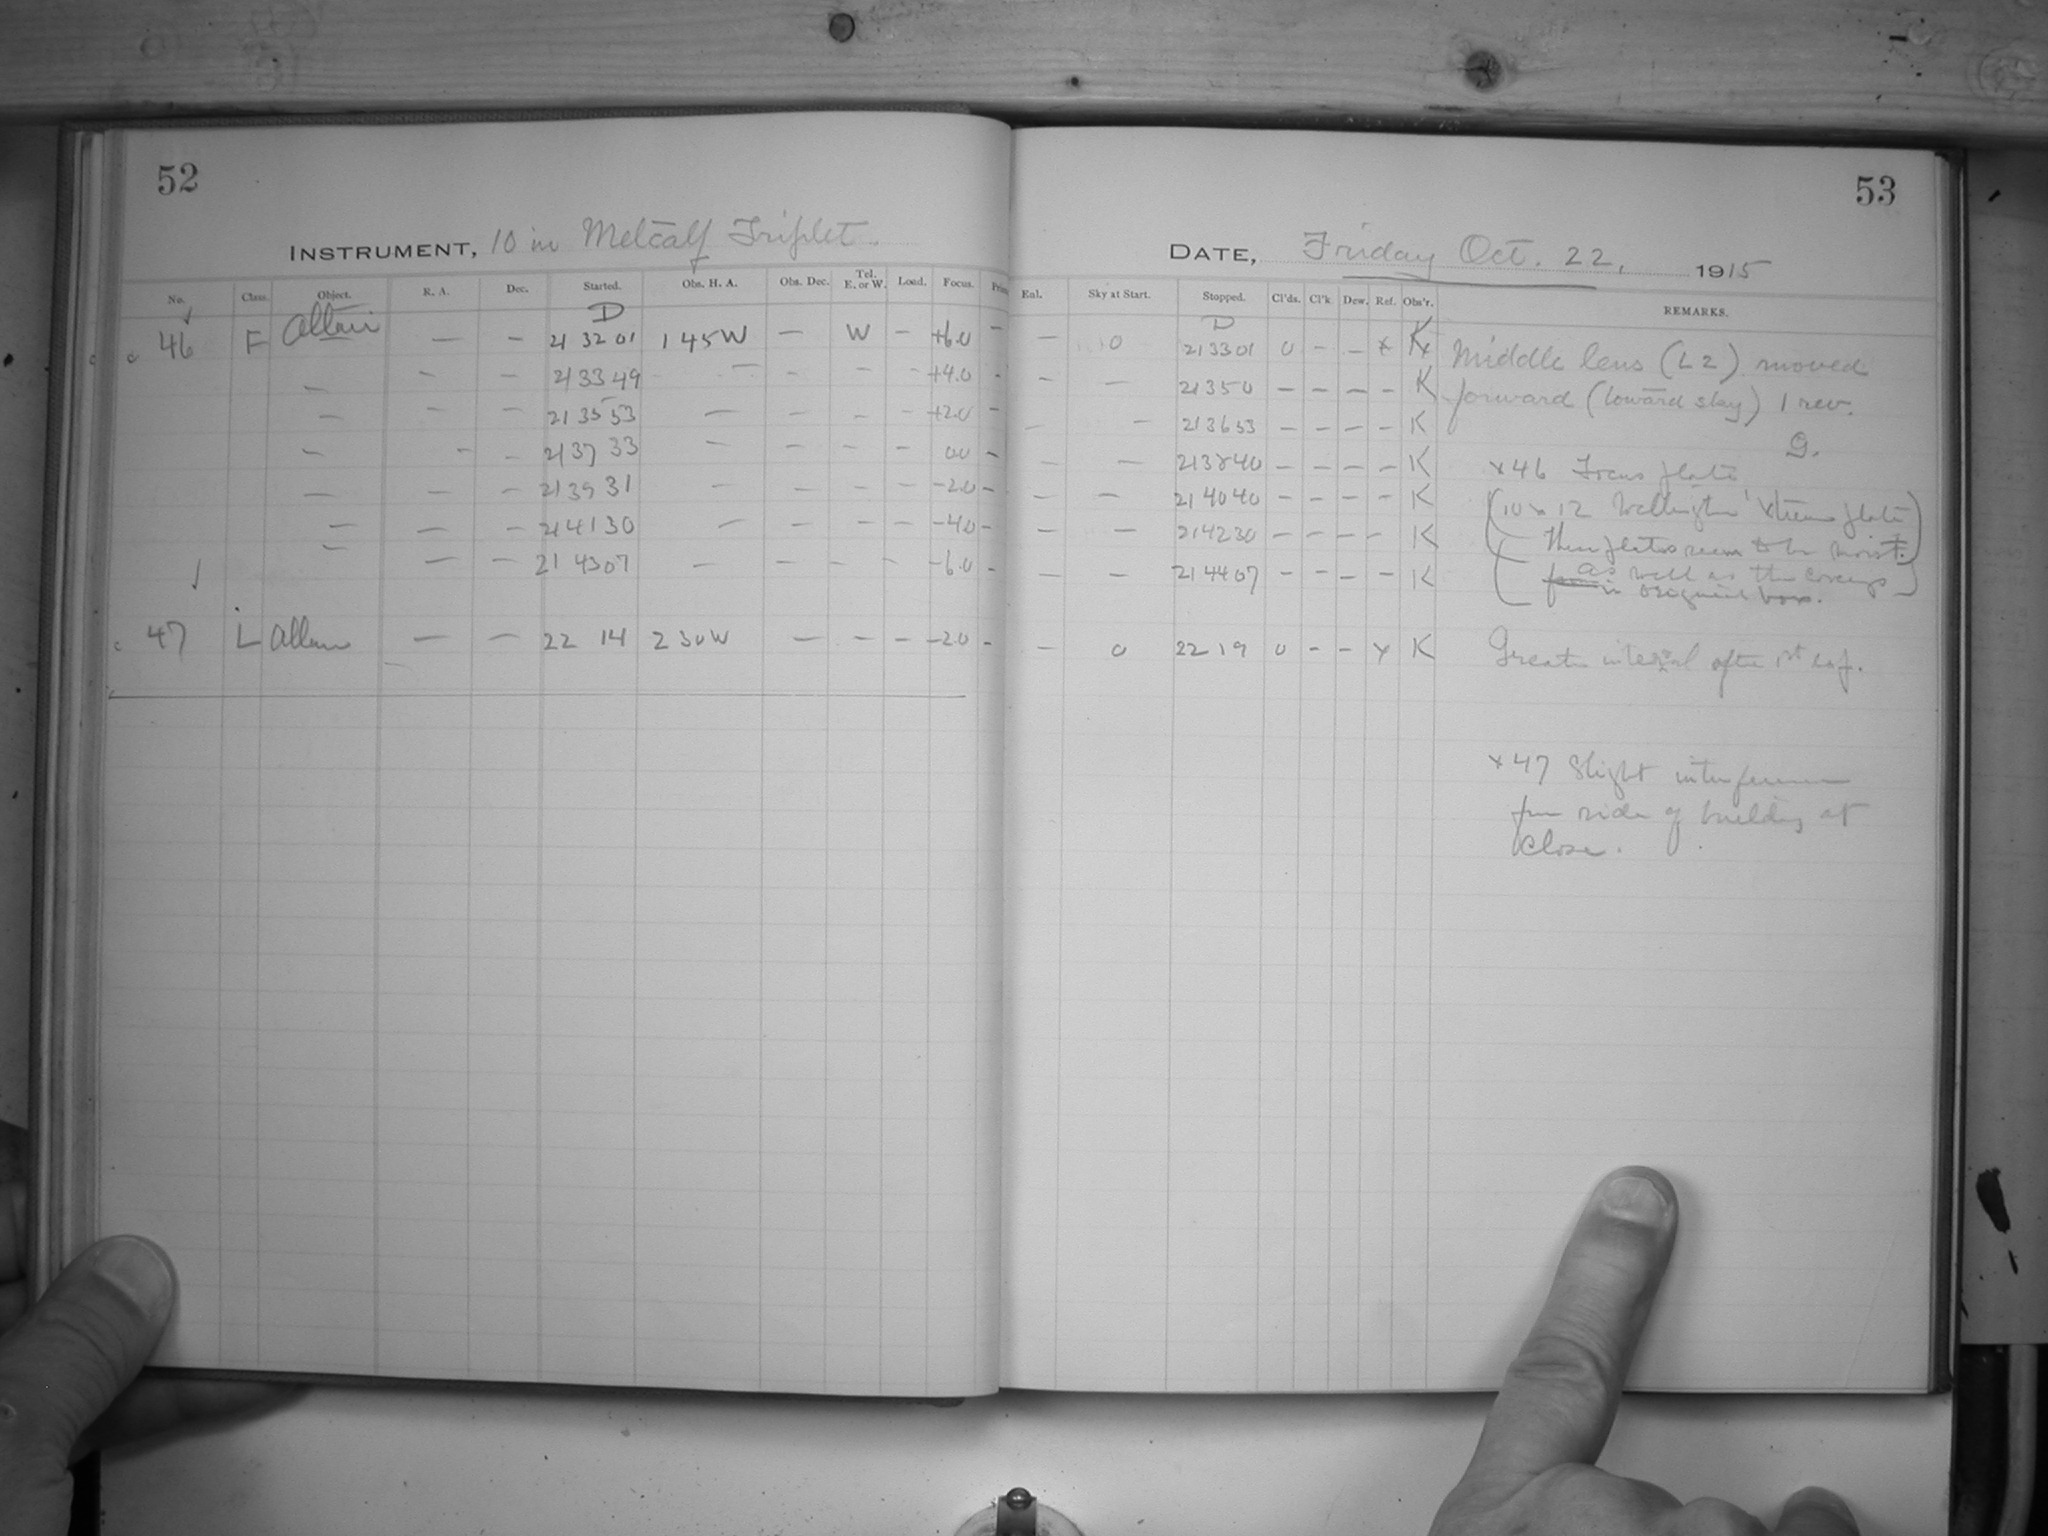 52
53
INSTRUMENT, 10 in Metcalf Triplet.
DATE, Friday Oct. 22, 1915
No. Class. Object. R. A. Dec. Started. Obs. H. A. Obs. Dec. Tel. E. or W. Load. Focus.
Sky at Start. Stopped. Cl'ds. Cl'k Dew. Ref. Obs'r. REMARKS.
D
D
46 F Altair — — 21 32 01 1 45 W — W — +6.0 –
— 0 21 33 01 0 – – x K x
— — — 21 33 49 — — — – +4.0 –
— — 21 35 0 – – – – K
— — — 21 35 53 — — — – +2.0 –
— — 21 36 53 – – – – K
— – – 21 37 33 — — — – 0.0 –
— — 21 38 40 – – – – K
— — — 21 39 31 – — — – -2.0 –
— — 21 40 40 – – – – K
— — — 21 41 30 — — — – -4.0 –
— — 21 42 30 – – – – K
— — — 21 43 07 — — — – -6.0 –
— — 21 44 07 – – – – K
47 L Altair — — 22 14 2 30 W — — – -2.0 –
— 0 22 19 0 – – x K
Middle lens (L2) moved
forward (toward sky) 1 rev.
G.
x 46 Focus plate
(10 x 12 Wellington Xtreme plate
These plates seem to be moist.)
(as well as the covers
in original box.
Greater interval after 1st exp.
x 47 Slight interference
from side of building at
close.